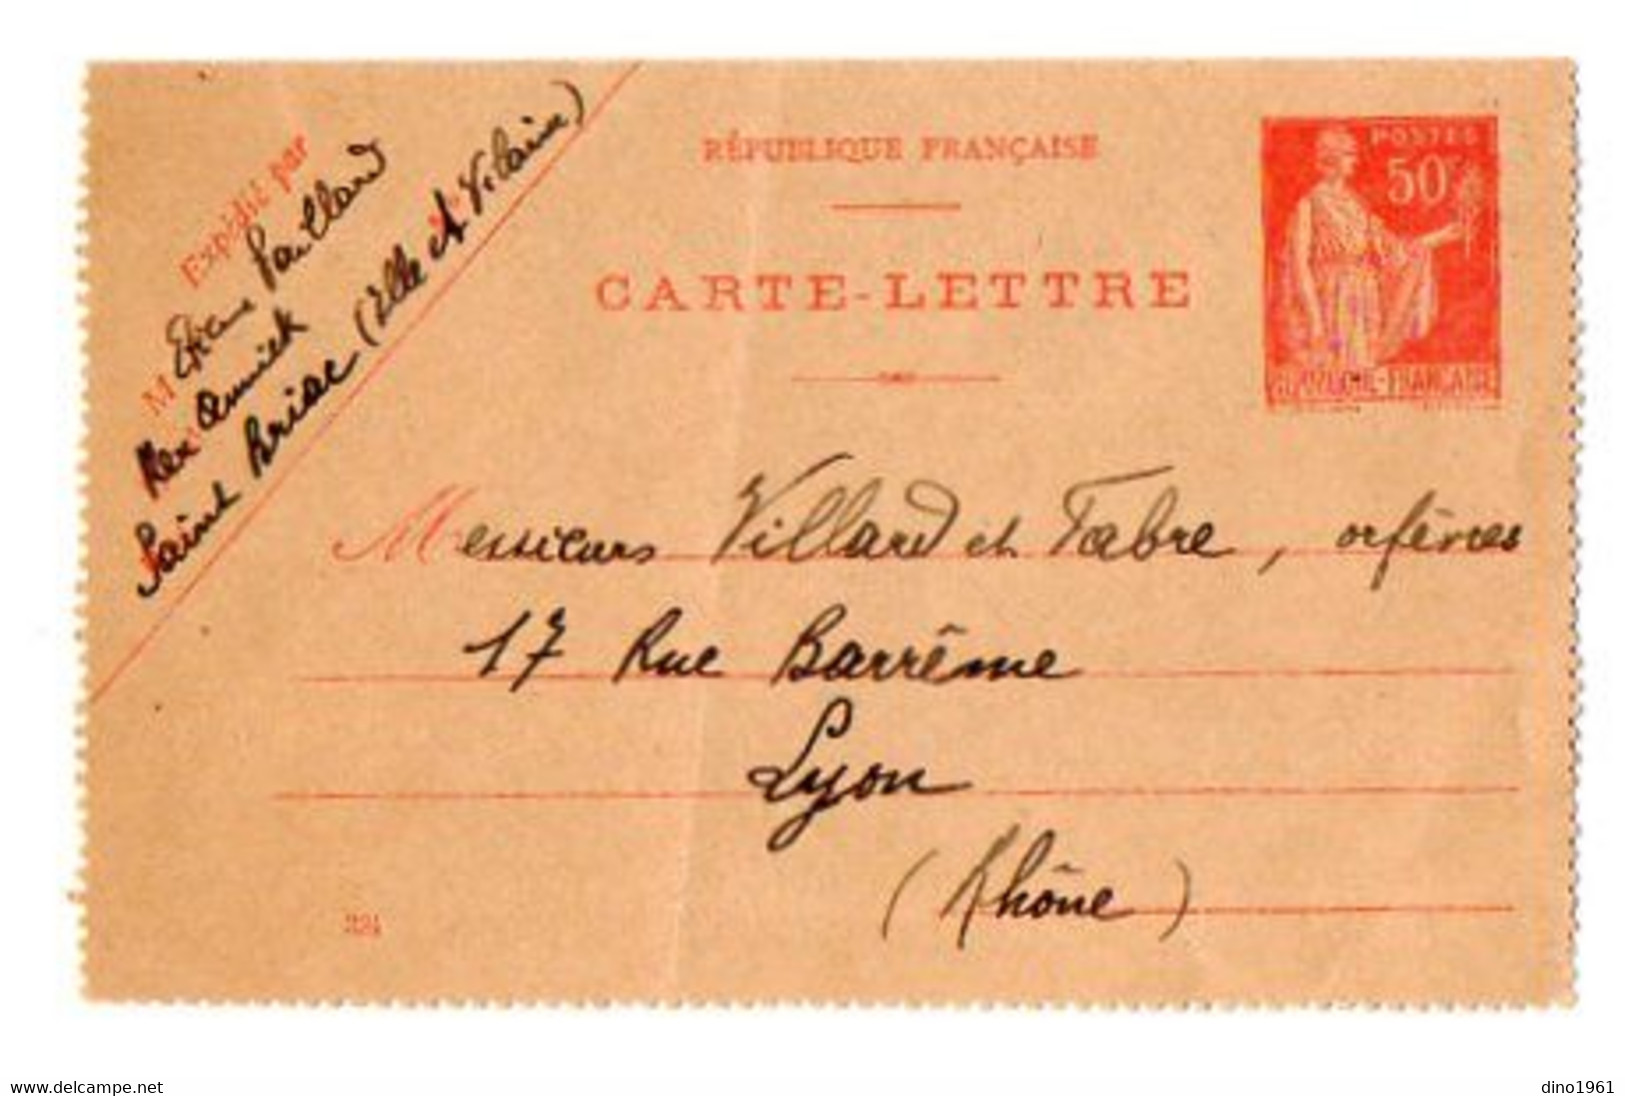 Expédié par
M Paillard
Saint Briac (Ille et Vilaine)
RÉPUBLIQUE FRANÇAISE
CARTE-LETTRE
POSTES
50c
RÉPUBLIQUE-FRANÇAISE
Messieurs Villard et Fabre, orfèvres
17 Rue Barrême
Lyon
(Rhône)
324
www.delcampe.net
dino1961